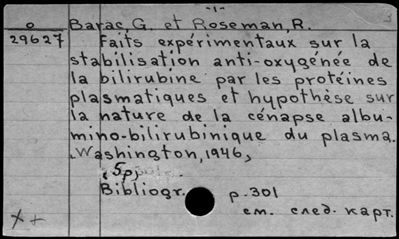 -1-
o Barac, G. et Roseman, R.
29627 Faits expérimentaux sur la
stabilisation anti-oxygénée de
la bilirubine par les protéines
plasmatiques et hypothèse sur
la nature de la cénapse albu-
mino-bilirubinique du plasma.
Washington, 1946,
5p
Bibliogr. p.301
см. след. карт.